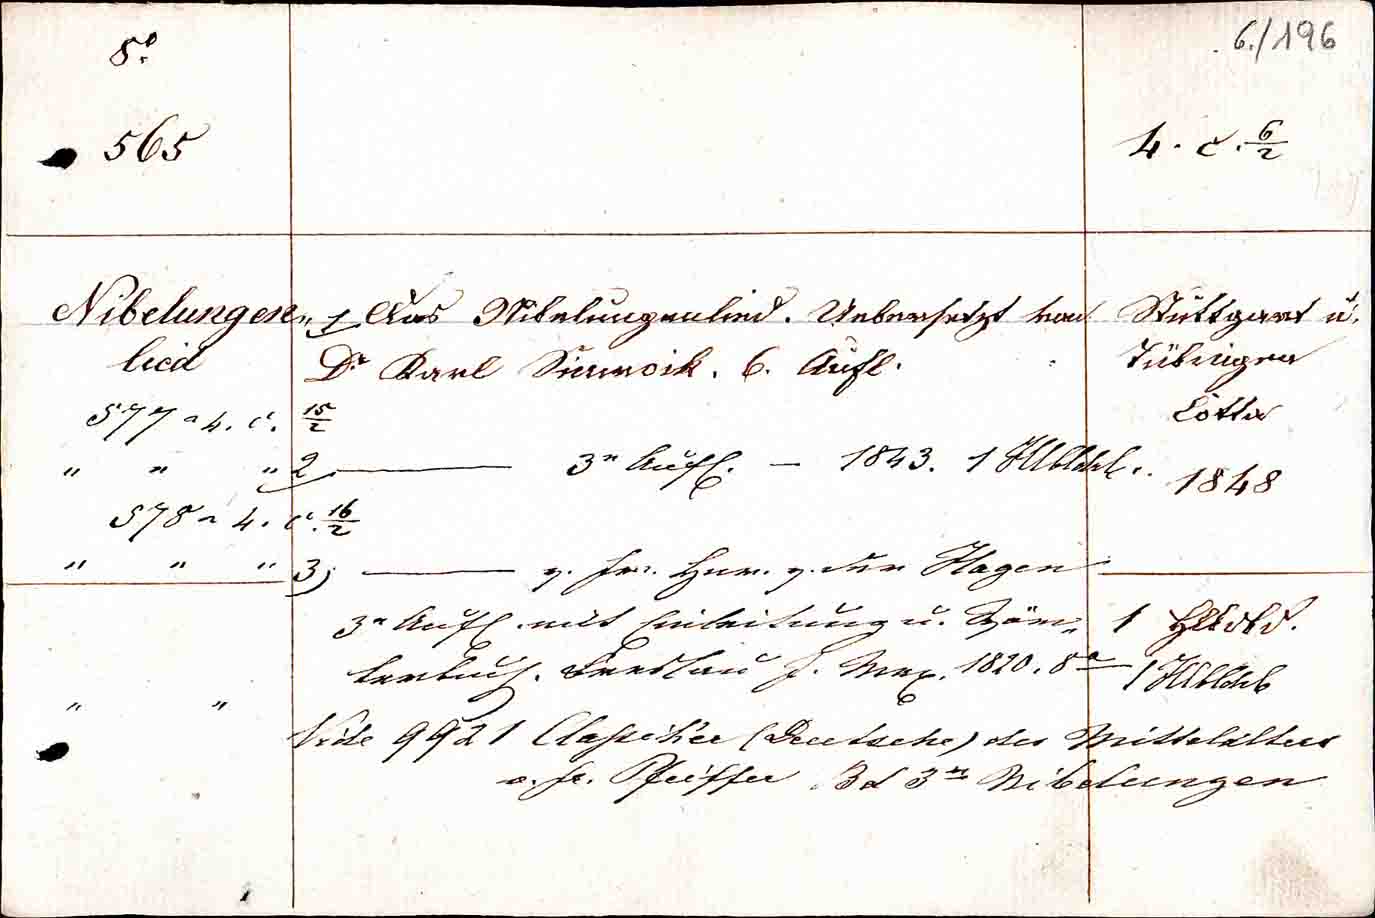 8°.
6./196
565
4. c. 6/2
Nibelungen„
lied
1 Das Nibelungenlied. Uebersetzt von
Dr Karl Simrock. 6. Aufl.
Stuttgart u.
Tübingen
Cotta
1848
577 a 4. c. 15/2
„ „ „ 2 ——— 3e Aufl. — 1843. 1 Hlbldrb.
578 a 4. c. 16/2
„ „ „ 3) ——— v. Fr. Hnr. v. der Hagen
3e Aufl. mit Einleitung u. Wör„
terbuch. Breslau J. Max. 1820. 8°
1 Hlbldrb
„ „
Vide 9921 Classiker (Deutsche) des Mittelalters
v. Fr. Pfeiffer Bd 3 Nibelungen